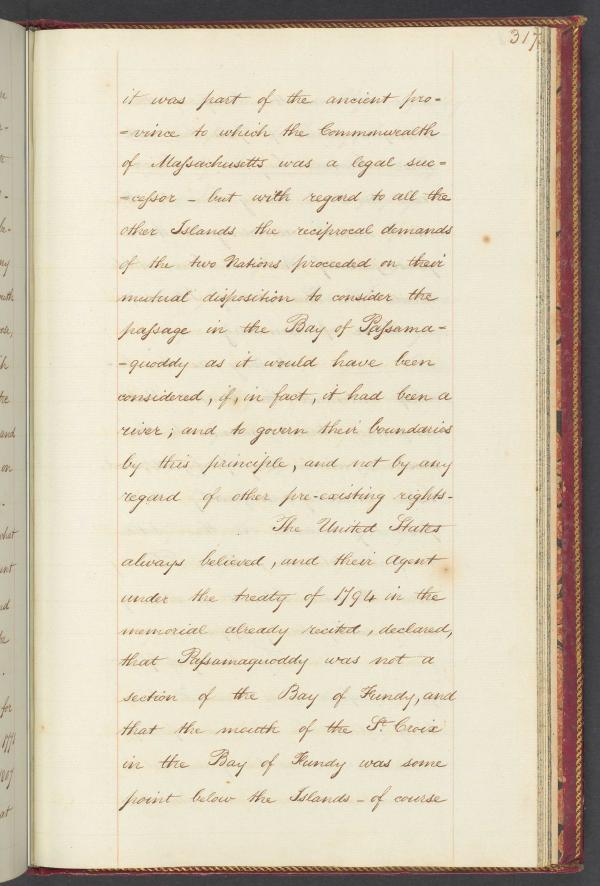 317
it was part of the ancient pro=
=vince to which the Commonwealth
of Maſsachusetts was a legal suc=
=ceſsor - but with regard to all the
other Islands the reciprocal demands
of the two Nations proceeded on their
mutual disposition to consider the
paſsage in the Bay of Paſsama-
-quoddy as it would have been
considered, if, in fact, it had been a
river; and to govern their boundaries
by this principle, and not by any
regard of other pre-existing rights-
The United States
always believed, and their Agent
under the treaty of 1794 in the
memorial already recited, declared,
that Paſsamaquoddy was not a
section of the Bay of Fundy, and
that the mouth of the St. Croix
in the Bay of Fundy was some
point below the Islands - of course